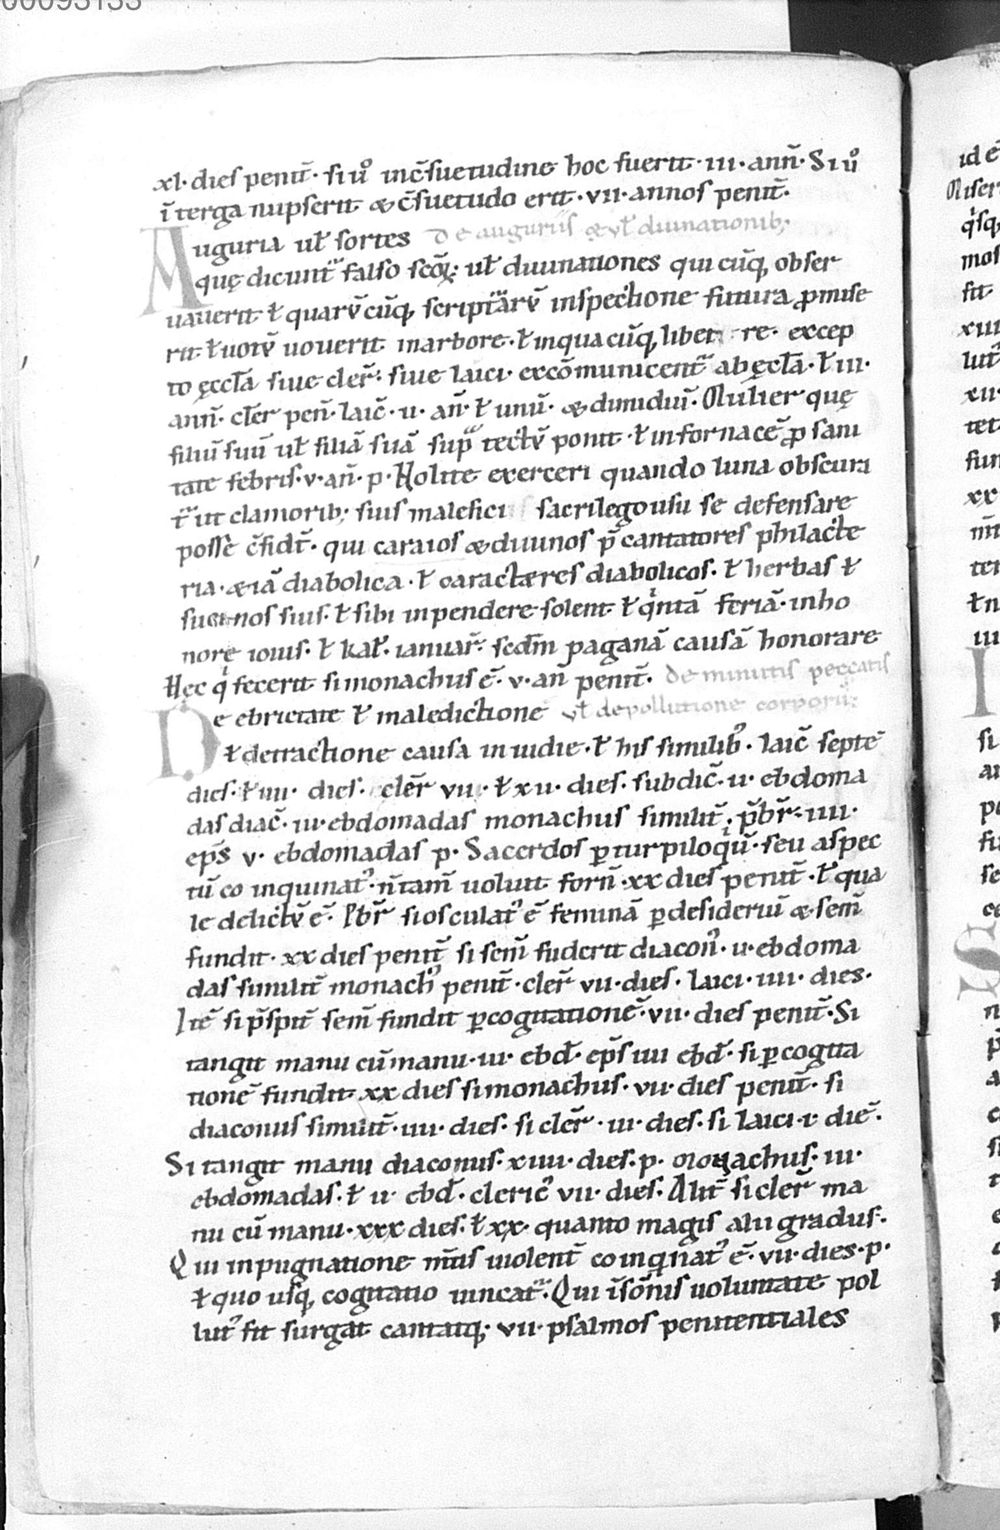 00093133
xl· dies penit̄· si ůo in c̄suetudine hoc fuerit· iii· ann̄· Si ůo
ī terga nupserit & c̄suetudo erit· vii· annos penit̄·
De auguriis & ul̄ diuinationib;
Auguria ul̄ sortes
quę dicunt᷑ falso scōꝝ: ul̄ diuinationes qui cūq, obser
uauerit ł quarū cūq, scripturarū inspectione futura ꝓmise
rit ł uotū uouerit in arbore· ł in qua cūq, libet re· excep
to ęccl̄a siue cler̄· siue laici· excōmunicent᷑ ab ęccl̄a· ł iii·
ann̄· cl̄er pen̄· laic̄· ii· an̄· ł unū· & dimidiū· Mulier quę
filiū suū ul̄ filiā suā supra tectū ponit· ł in fornacē ꝓ sani
tate febris· v· an̄· p· Nolite exerceri quando luna obscura
t᷑ ut clamorib; suis malefici sacrilego usu se defensare
posse c̄fidt̄· qui caraios & diuinos p̄cantatores philacte
ria· & iā diabolica· ł caracteres diabolicos· ł herbas ł
sucinos suis· ł sibi inpendere solent ł quintā feriā· in ho
norę iouis· ł kal̄· ianuar̄· scdm̄ paganā causā honorare
Hęc qi fecerit si monachus ē· v· an̄ penit̄· de minutis peccatis
De ebrietate ł maledictione ul̄ de pollutione corporū:
ł detractione causa inuidie· ł his similib᷒· laic̄ septē
dies· ł iiii· dies· cler̄ vii· ł x u· dies· subdic̄· u· ebdoma
das diac̄· iii· ebdomadas monachus similit̄· p̄br̄· iiii·
ep̄s v· ebdomadas p· Sacerdos ꝑ turpiloquiū· seu aspec
tū coinquinat᷒· n̄ tam̄ uoluit forn̄· xx dies penit̄· ł qua
le delictū ē· Pbr̄ si osculat᷒ ē feminā ꝑ desideriū & sem̄
fundit· xx dies penit̄ si sem̄ fuderit diacon᷒· u· ebdoma
das similit̄ monach᷒ penit̄· cler̄ vii· dies· laici· iiii· dies·
Itē si p̄spit̄ sem̄ fundit ꝑ cogitationē· vii· dies penit̄· Si
tangit manu cū manu· iii· ebd̄· ep̄s iiii ebd̄· si ꝑ cogita
tionē fundit· xx dies si monachus· vii· dies penit̄· si
diaconus similit̄· iiii· dies· si cler̄· iii· dies· si laici· i· diē·
Si tangit manu diaconus· xiiii· dies· p· monachus· iii·
ebdomadas· ł ii· ebd̄· cleric᷒ vii· dies· Alit̄ si cler̄ ma
nu cū manu· xxx dies· ł xx· quanto magis alii gradus·
Qui inpugnatione m̄tis uiolent̄ coinqinat᷒ ē· vii· dies· p·
ł quo usq, cogitatio uincat᷑· Qui ī sōnis uoluntate pol
lut᷒ fit surgat cantatq; vii· psalmos penitentiales